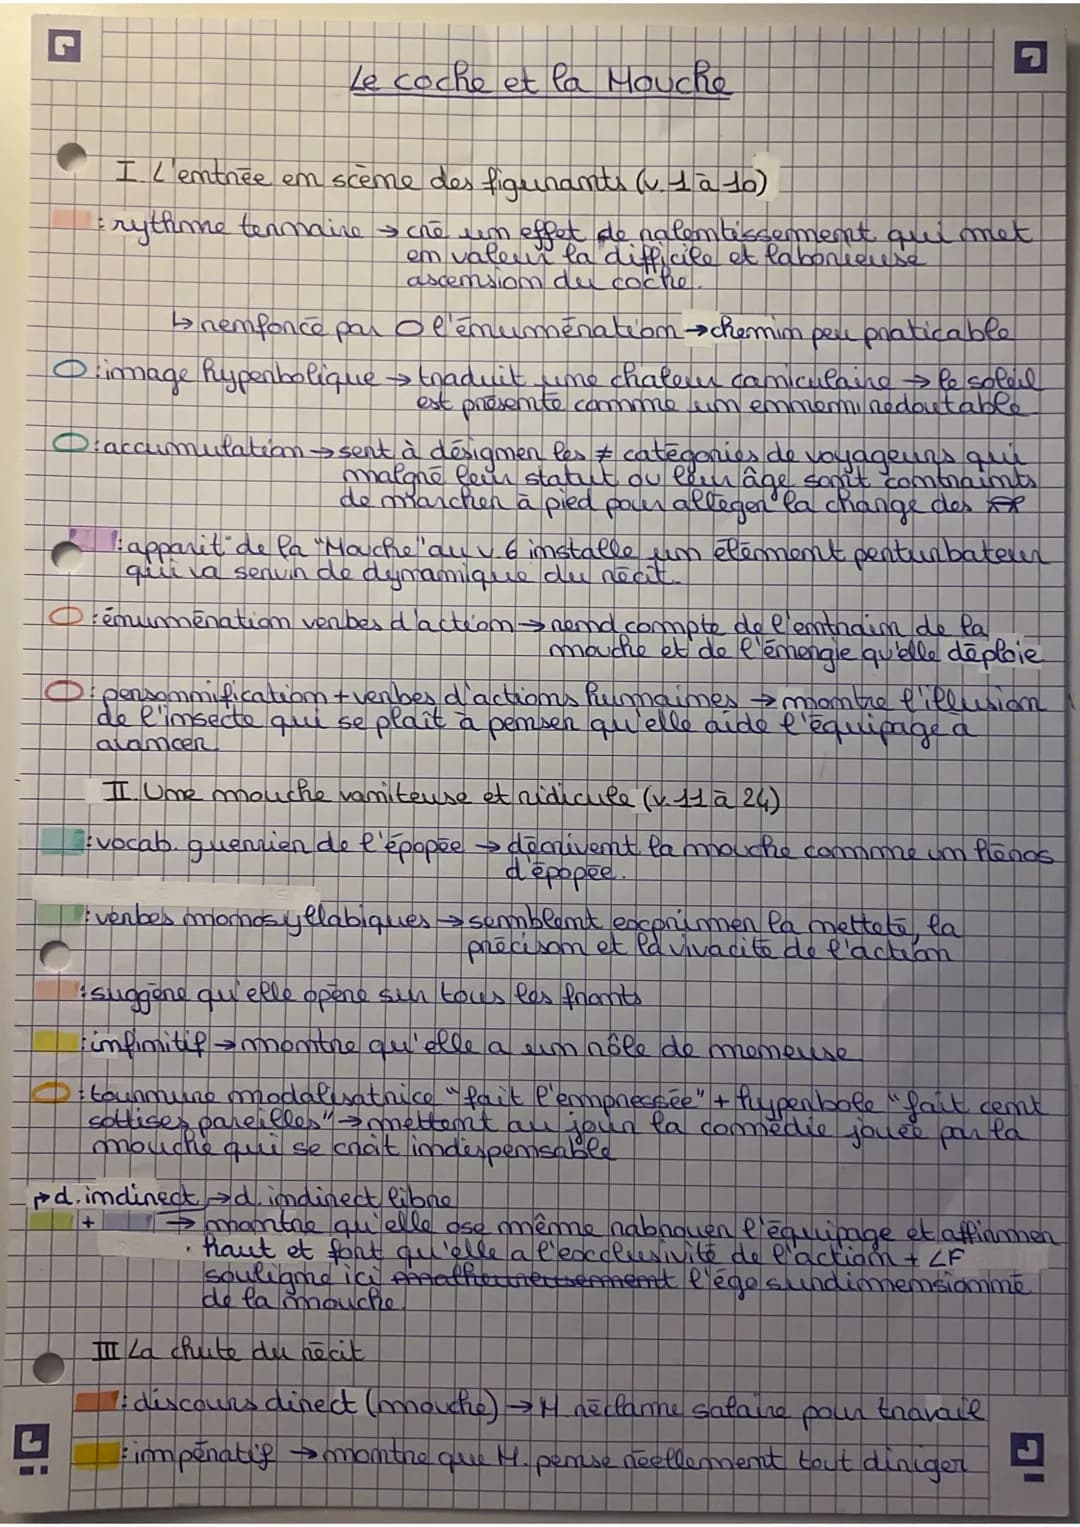 Le coche et la Mouche
I. L'entrée en scène des figurants (v. 1 à 10)
: rythme ternaire → crée un effet de ralentissement qui met
en valeur la difficile et laborieuse
ascension du coche.
↳ renforcé par O l'énumération → chemin peu praticable
O : image hyperbolique → traduit une chaleur caniculaire → le soleil
est présenté comme un ennemi redoutable
O : accumulation → sert à désigner les ≠ catégories de voyageurs qui
malgré leur statut ou leur âge sont contraints
de marcher à pied pour alléger la charge des
: apparit° de la "Mouche" au v. 6 installe un élément perturbateur
qui va servir de dynamique du récit.
O : énumération verbes d'action → rend compte de l'entrain de la
mouche et de l'énergie qu'elle déploie
O : personnification + verbes d'actions humaines → montre l'illusion
de l'insecte qui se plaît à penser qu'elle aide l'équipage à
avancer
II. Une mouche vaniteuse et ridicule (v. 11 à 24)
: vocab. guerrien de l'épopée → décrivent la mouche comme un héros
d'épopée.
: verbes monosyllabiques → semblent exprimer la netteté, la
précison et la vivacité de l'action
: suggère qu'elle opère sur tous les fronts
: infinitif → montre qu'elle a un rôle de meneuse
O : tournure modalisatrice "fait l'empressée" + hyperbole "fait cent
sottises pareilles" → mettent au jour la comédie jouée par la
mouche qui se croit indispensable
→ d. indirect → d. indirect libre
+ → montre qu'elle ose même rabrouer l'équipage et affirmer
haut et fort qu'elle a l'exclusivité de l'action + LF
souligne ici malheureusement l'égo surdimensionné
de la mouche.
III La chute du récit
: discours direct (mouche) → M réclame salaire pour travail
: impératif → montre que M. pense réellement tout diriger